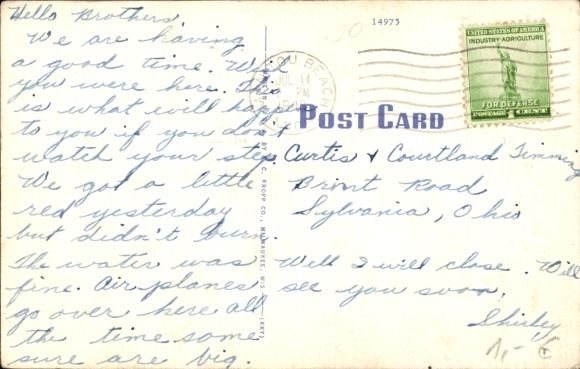 Hello Brothers
We are having
a good time. Wish
you were here. This
is what will happen
to you if you don't
watch your step.
We got a little
red yesterday
but didn't burn.
The water was
fine. Air planes
go over here all
the time some
sure are big.
14975
POST CARD
BY E. C. KROPP CO., MILWAUKEE, WIS. (KEY)
BEACH
JUL 14
PM
UNITED STATES OF AMERICA
INDUSTRY AGRICULTURE
FOR DEFENSE
POSTAGE 1 CENT
Curtis & Courtland Timming
Brint Road
Sylvania, Ohio
Well I will close. Will
see you soon,
Shirley